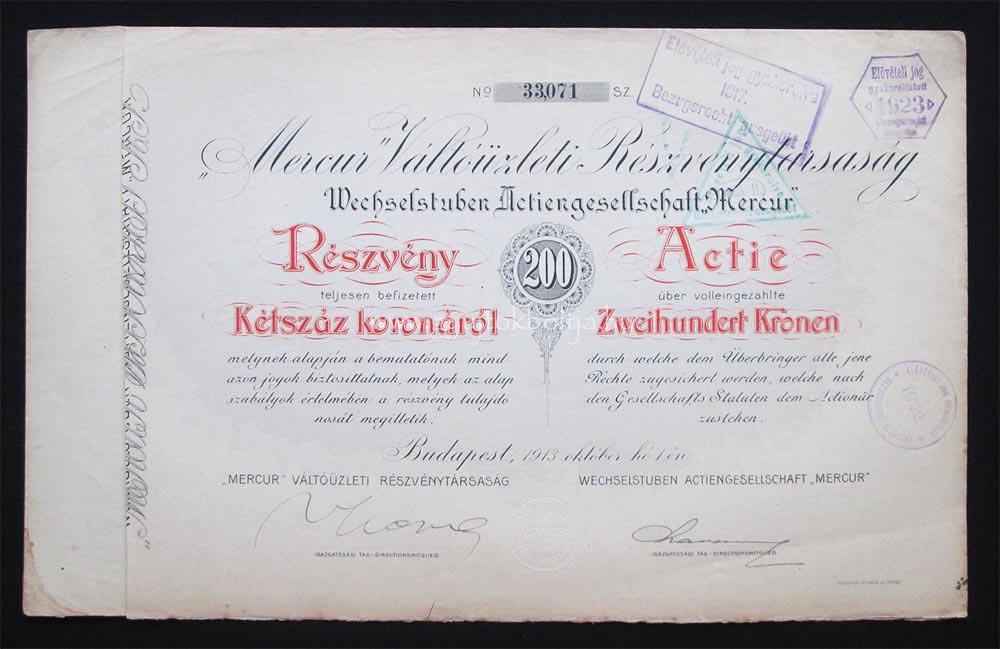 No 33,071 SZ.
Elővételi jog gyakorolva
1917.
Bezugsrecht ausgeübt
Elővételi jog
gyakoroltatott
1923
Bezugsrecht
„Mercur" Váltóüzleti Részvénytársaság
Wechselstuben Actiengesellschaft „Mercur"
Részvény
teljesen befizetett
Kétszáz koronáról
200
Actie
über volleingezahlte
Zweihundert Kronen
melynek alapján a bemutatónak mind
azon jogok biztosíttatnak, melyek az alap
szabályok értelmében a részvény tulajdo
nosát megilletik.
durch welche dem Überbringer alle jene
Rechte zugesichert werden, welche nach
den Gesellschafts Statuten dem Actionär
zustehen.
1922
Budapest, 1913 október hó 1 én.
„MERCUR" VÁLTÓÜZLETI RÉSZVÉNYTÁRSASÁG
WECHSELSTUBEN ACTIENGESELLSCHAFT „MERCUR"
IGAZGATÓSÁGI TAG - DIRECTIONSMITGLIED.
IGAZGATÓSÁGI TAG - DIRECTIONSMITGLIED.